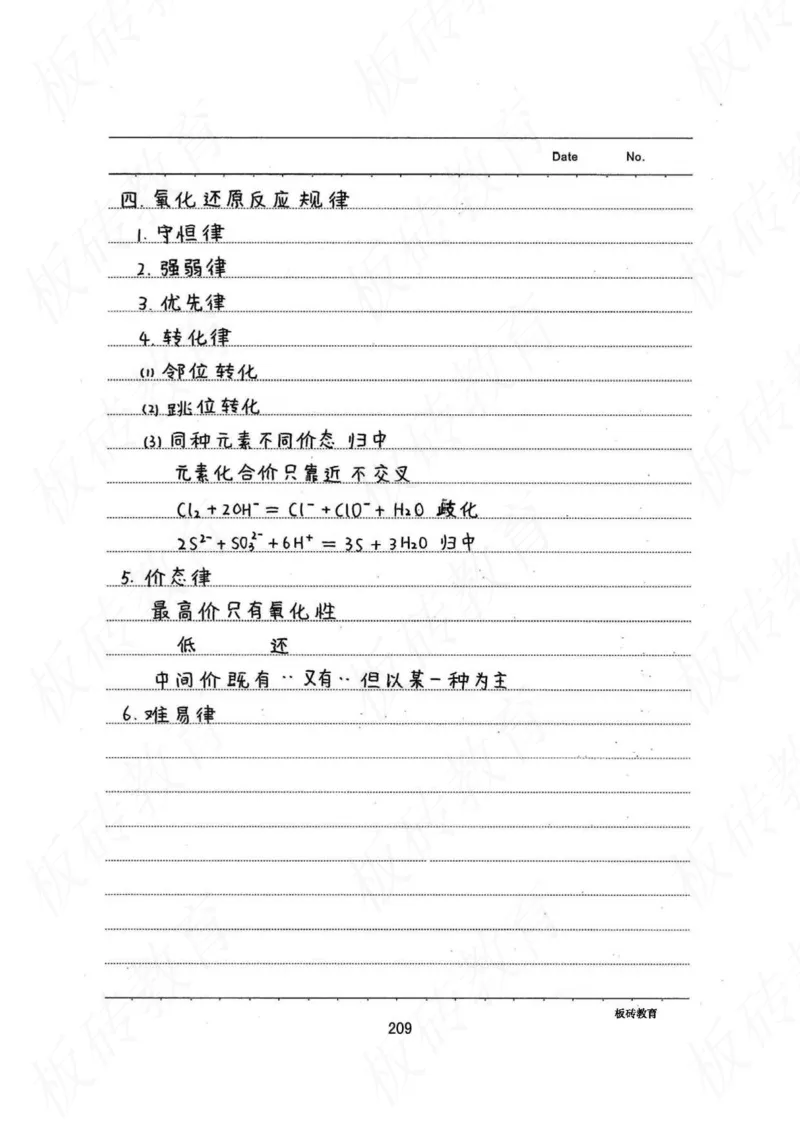 Date No.
四. 氧化还原反应规律
1. 守恒律
2. 强弱律
3. 优先律
4. 转化律
(1) 邻位转化
(2) 跳位转化
(3) 同种元素不同价态 归中
元素化合价只靠近 不交叉
Cl₂ + 2OH⁻ = Cl⁻ + ClO⁻ + H₂O 歧化
2S²⁻ + SO₃²⁻ + 6H⁺ = 3S + 3H₂O 归中
5. 价态律
最高价只有氧化性
低 还
中间价既有‥又有‥但以某一种为主
6. 难易律
板砖教育
209